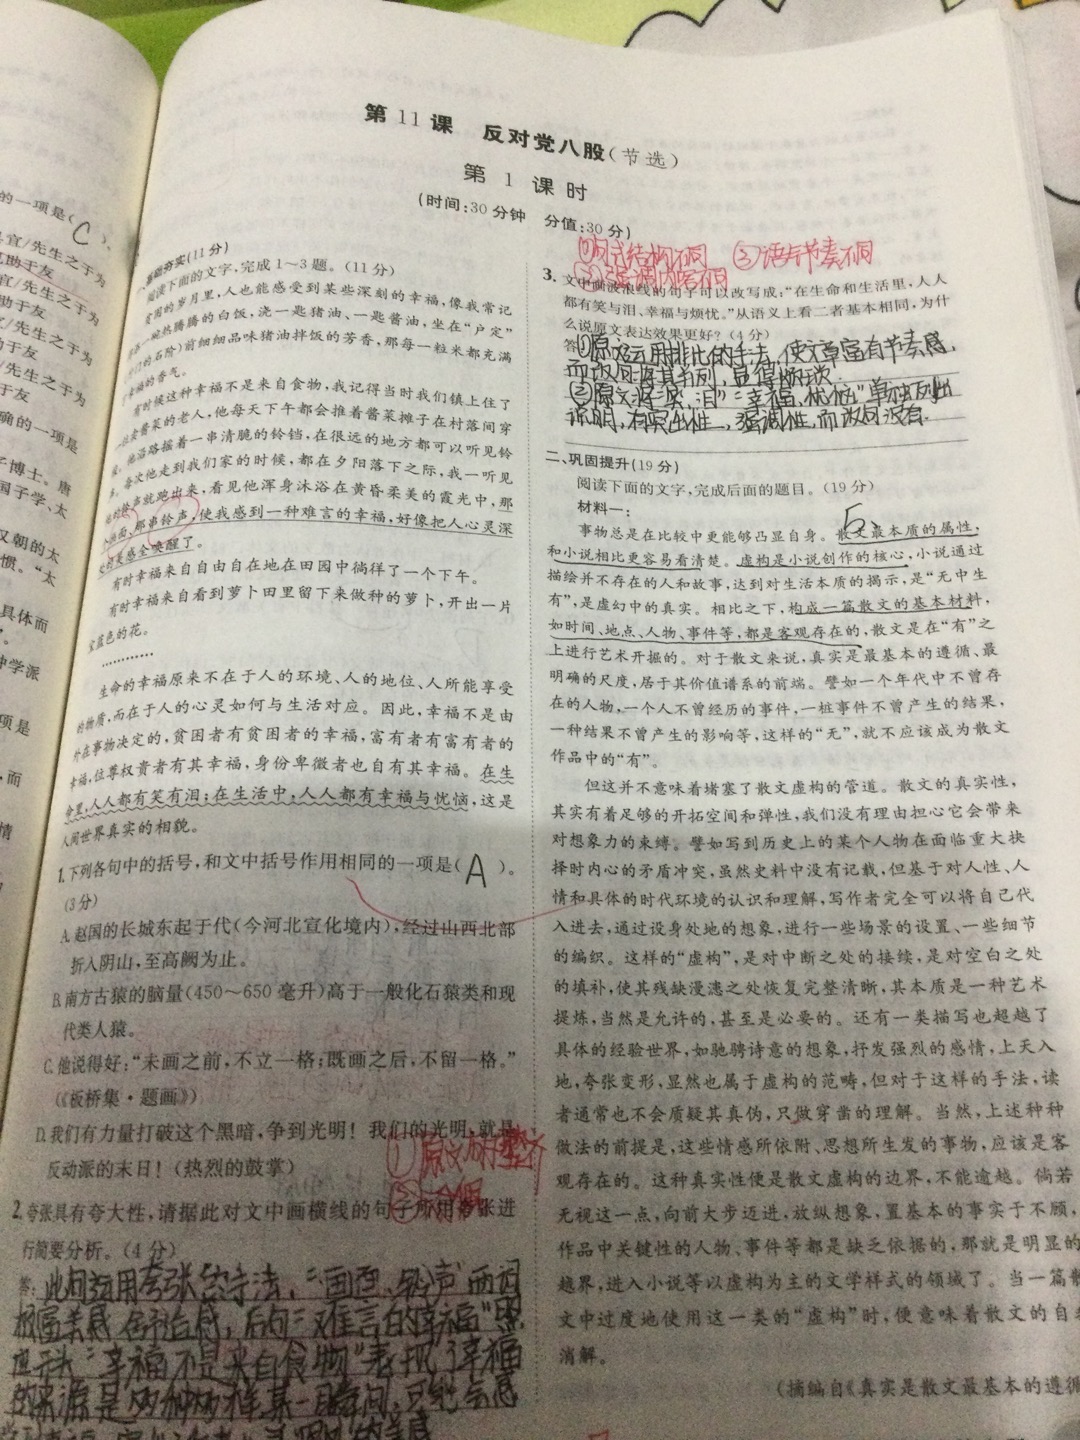 的一项是(C)。
宜/先生之于为
助于友
宜/先生之于为
助于友
先生之于为
于友
先生之于为
于友
确的一项是
子博士。唐
国子学、太
又朝的太
惯。“太
具体而
中学派
项是
而
情
第11课 反对党八股(节选)
第 1 课时
(时间:30分钟 分值:30分)
基础夯实(11分)
阅读下面的文字,完成1～3题。(11分)
贫困的岁月里,人也能感受到某些深刻的幸福,像我常记
一碗热腾腾的白饭,浇一匙猪油、一匙酱油,坐在“户定”
的石阶)前细细品味猪油拌饭的芳香,那每一粒米都充满
幸福的香气。
有时候这种幸福不是来自食物,我记得当时我们镇上住了
卖酱菜的老人,他每天下午都会推着酱菜摊子在村落间穿
他沿路摇着一串清脆的铃铛,在很远的地方都可以听见铃
每次他走到我们家的时候,都在夕阳落下之际,我一听见
铃声就跑出来,看见他浑身沐浴在黄昏柔美的霞光中,那
画面,那串铃声,使我感到一种难言的幸福,好像把人心灵深
美感全唤醒了。
有时幸福来自自由自在地在田园中徜徉了一个下午。
有时幸福来自看到萝卜田里留下来做种的萝卜,开出一片
蓝色的花。
…………
生命的幸福原来不在于人的环境、人的地位、人所能享受
的物质,而在于人的心灵如何与生活对应。因此,幸福不是由
外在事物决定的,贫困者有贫困者的幸福,富有者有富有者的
幸福,位尊权贵者有其幸福,身份卑微者也自有其幸福。在生
命里,人人都有笑有泪;在生活中,人人都有幸福与忧恼,这是
人间世界真实的相貌。
1.下列各句中的括号,和文中括号作用相同的一项是(A)。
(3分)
A.赵国的长城东起于代(今河北宣化境内),经过山西北部
折入阴山,至高阙为止。
B.南方古猿的脑量(450～650毫升)高于一般化石猿类和现
代类人猿。
C.他说得好:“未画之前,不立一格;既画之后,不留一格。”
(《板桥集·题画》)
D.我们有力量打破这个黑暗,争到光明！我们的光明,就是
反动派的末日！(热烈的鼓掌)
①原文 整齐
②
2.夸张具有夸大性,请据此对文中画横线的句子所用夸张进
行简要分析。(4分)
答:此句运用夸张的手法,“画面、铃声”两词
极富美感,舒适感,后句“难言的幸福”照
应开头“幸福不是来自食物”表现了幸福
的来源是
①句式结构不同 ③语气节奏不同
②强调内容不同
3.文中画波浪线的句子可以改写成:“在生命和生活里,人人
都有笑与泪、幸福与烦忧。”从语义上看二者基本相同,为什
么说原文表达效果更好？(4分)
答①原文运用排比的手法,使文章富有节奏感,
而改句将其并列,显得烦琐
②原文将“笑、泪”“幸福、忧恼”单独列出
说明,有突出性,强调性,而改句没有.
二、巩固提升(19分)
阅读下面的文字,完成后面的题目。(19分)
材料一:
事物总是在比较中更能够凸显自身。散文最本质的属性,
和小说相比更容易看清楚。虚构是小说创作的核心,小说通过
描绘并不存在的人和故事,达到对生活本质的揭示,是“无中生
有”,是虚幻中的真实。相比之下,构成一篇散文的基本材料,
如时间、地点、人物、事件等,都是客观存在的,散文是在“有”之
上进行艺术开掘的。对于散文来说,真实是最基本的遵循、最
明确的尺度,居于其价值谱系的前端。譬如一个年代中不曾存
在的人物,一个人不曾经历的事件,一桩事件不曾产生的结果,
一种结果不曾产生的影响等,这样的“无”,就不应该成为散文
作品中的“有”。
但这并不意味着堵塞了散文虚构的管道。散文的真实性,
其实有着足够的开拓空间和弹性,我们没有理由担心它会带来
对想象力的束缚。譬如写到历史上的某个人物在面临重大抉
择时内心的矛盾冲突,虽然史料中没有记载,但基于对人性、人
情和具体的时代环境的认识和理解,写作者完全可以将自己代
入进去,通过设身处地的想象,进行一些场景的设置、一些细节
的编织。这样的“虚构”,是对中断之处的接续,是对空白之处
的填补,使其残缺漫漶之处恢复完整清晰,其本质是一种艺术
提炼,当然是允许的,甚至是必要的。还有一类描写也超越了
具体的经验世界,如驰骋诗意的想象,抒发强烈的感情,上天入
地,夸张变形,显然也属于虚构的范畴,但对于这样的手法,读
者通常也不会质疑其真伪,只做穿凿的理解。当然,上述种种
做法的前提是,这些情感所依附、思想所生发的事物,应该是客
观存在的。这种真实性便是散文虚构的边界,不能逾越。倘若
无视这一点,向前大步迈进,放纵想象,置基本的事实于不顾,
作品中关键性的人物、事件等都是缺乏依据的,那就是明显的
越界,进入小说等以虚构为主的文学样式的领域了。当一篇散
文中过度地使用这一类的“虚构”时,便意味着散文的自
消解。
(摘编自《真实是散文最基本的遵循